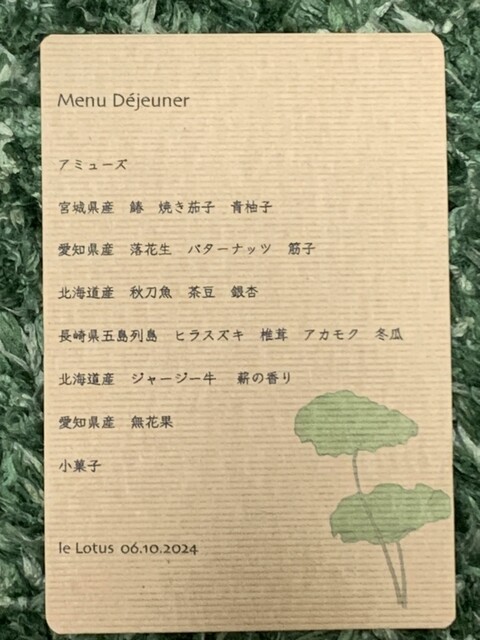 Menu Déjeuner
アミューズ
宮城県産　鰆　焼き茄子　青柚子
愛知県産　落花生　バターナッツ　筋子
北海道産　秋刀魚　茶豆　銀杏
長崎県五島列島　ヒラスズキ　椎茸　アカモク　冬瓜
北海道産　ジャージー牛　薪の香り
愛知県産　無花果
小菓子
le Lotus 06.10.2024